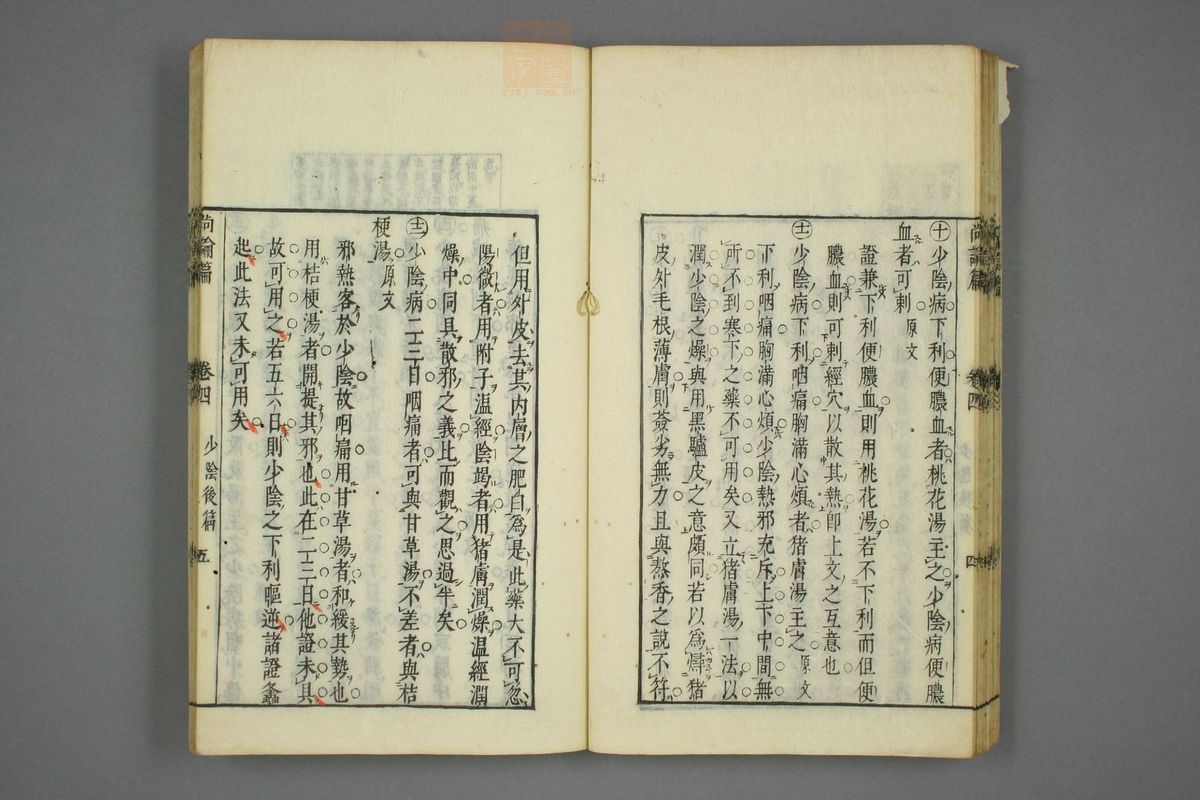 尚論篇 卷四 四
㊉少陰病下利便膿血者桃花湯主之少陰病便膿
血者可刺 原文
證兼下利便膿血則用桃花湯若不下利而但便
膿血則可刺經穴以散其熱卽上文之互意也
㊉一少陰病下利咽痛胸滿心煩者猪膚湯主之 原文
下利咽痛胸滿心煩少陰熱邪充斥上下中間無
所不到寒下之藥不可用矣又立猪膚湯一法以
潤少陰之燥與用黑驢皮之意頗同若以爲燖猪
皮外毛根薄膚則簽劣無力且與熬香之說不符
但用外皮去其内層之肥白爲是此藥大不可忽
陽微者用附子溫經陰竭者用猪膚潤燥溫經潤
燥中同具散邪之義比而觀之思過半矣
㊉二少陰病二三日咽痛者可與甘草湯不差者與桔
梗湯 原文
邪熱客於少陰故咽痛用甘草湯者和緩其勢也
用桔梗湯者開提其邪也此在二三日他證未具
故可用之若五六日則少陰之下利嘔逆諸證蠭
起此法又未可用矣
尚論篇 卷四 少陰後篇 五
zysj.com.cn